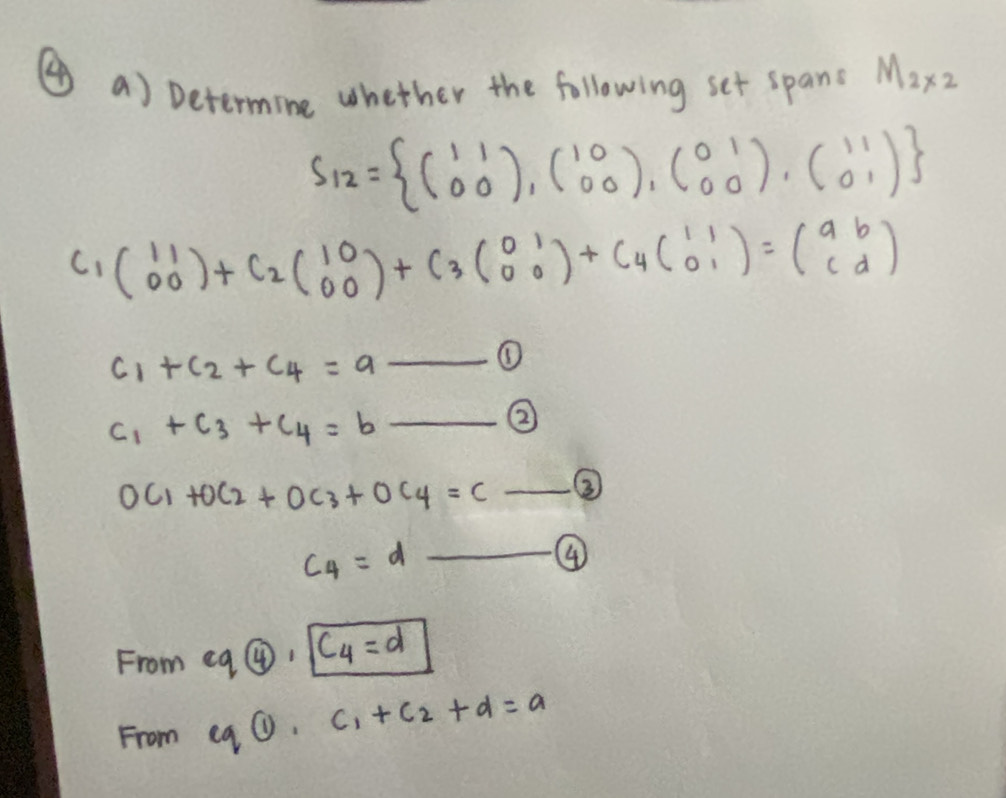 ④ a) Determine whether the following set spans M2×2
S12 = {(1 1 0 0), (1 0 0 0), (0 1 0 0), (1 1 0 1)}
C1 (1 1 0 0) + C2 (1 0 0 0) + C3 (0 1 0 0) + C4 (1 1 0 1) = (a b c d)
C1 + C2 + C4 = a —— ①
C1 + C3 + C4 = b —— ②
0C1 + 0C2 + 0C3 + 0C4 = c —— ③
C4 = d —— ④
From eq ④, C4 = d
From eq ①, C1 + C2 + d = a